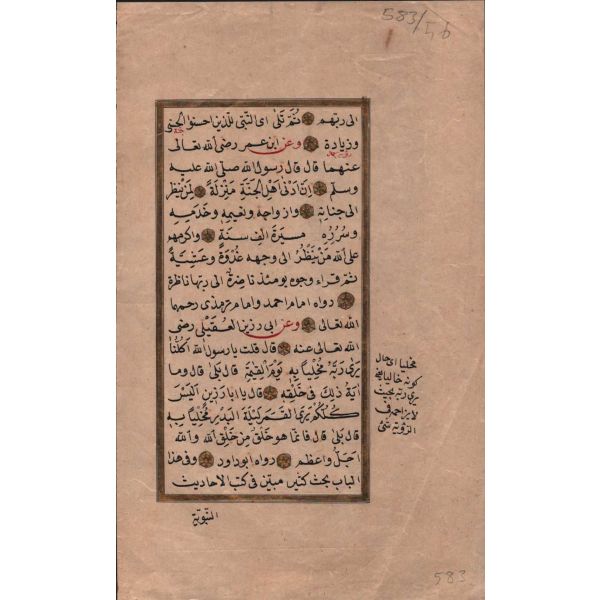 583/56
الى ربّهم ثمّ تلى اى النّبى للّذين احسنوا الحسنى
وزيادة وعن ابن عمر رضى الله تعالى
عنهما قال قال رسول الله صلّى الله عليه
وسلّم انّ ادنى اهل الجنّة منزلةً لمن ينظر
الى جنانه وازواجه ونعيمه وخدمه
وسرره مسيرة الف سنة واكرمهم
على الله من ينظر الى وجهه غدوةً وعشيّةً
ثمّ قراء وجوه يومئذ ناضرة الى ربّها ناظرة
رواه امام احمد وامام ترمذى رحمهما
الله تعالى وعن ابى رزين العقيلى رضى
الله تعالى عنه قال قلت يا رسول الله اكلّنا
يرى ربّه مخليا به يوم القيمة قال بلى قال وما
اية ذلك فى خلقه قال يا ابا رزين اليس
كلّكم يرى القمر ليلة البدر مخليا به
قال بلى قال فانّما هو خلق من خلق الله والله
اجلّ واعظم رواه ابو داود وفى هذا
الباب بحث كثير مبيّن فى كتب الاحاديث
النّبويّة
مخليا اى حال
كونه خاليا
يرى ربّه بحيث
لا يزاحمه فى
الرّؤية شئ
583